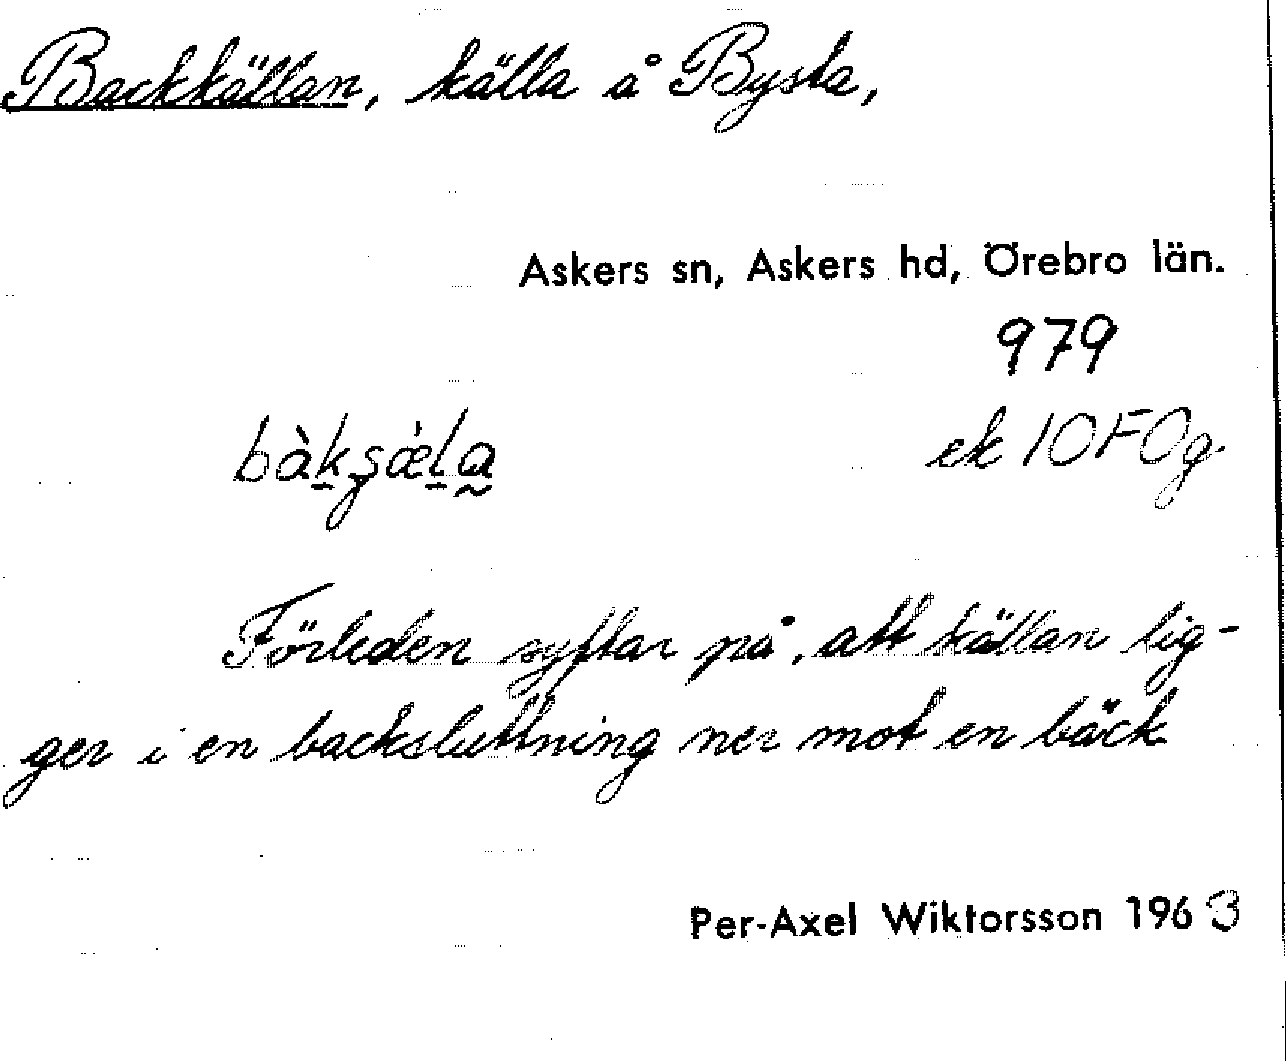 Backkällan, källa å Bysta,
Askers sn, Askers hd, Örebro län.
979
bàk̠ʂǽl̠a̰
ek 10F0g
Förleden syftar på, att källan lig-
ger i en backsluttning ner mot en bäck
Per-Axel Wiktorsson 1963